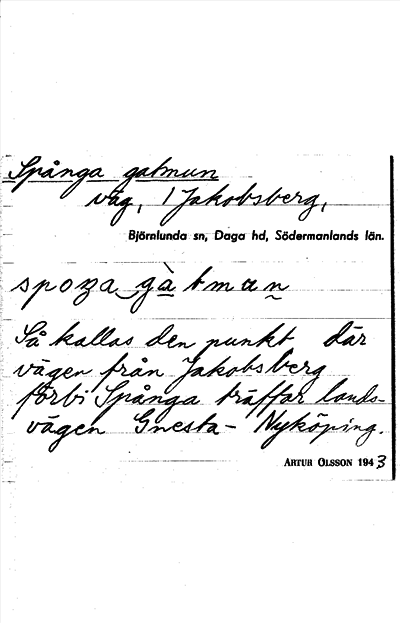 Spånga gatmun
väg, 1 Jakobsberg,
Björnlunda sn, Daga hd, Södermanlands län.
Så kallas den punkt där
vägen från Jakobsberg
förbi Spånga träffar lands-
vägen Gnesta - Nyköping.
ARTUR OLSSON 1943